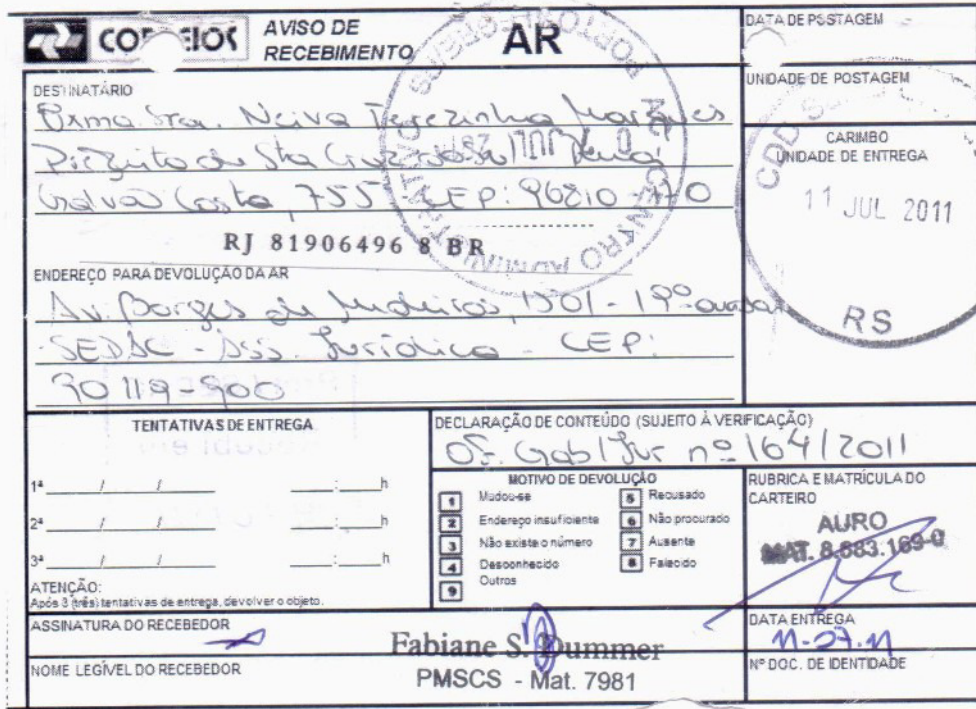 CORREIOS
AVISO DE
RECEBIMENTO
AR
DATA DE POSTAGEM
UNIDADE DE POSTAGEM
DESTINATÁRIO
Exma. Sra. Neiva Terezinha Marques
Prefeita de Sta Cruz do Sul
Galvão Costa, 755 - CEP: 96810-170
RJ 81906496 8 BR
CARIMBO
UNIDADE DE ENTREGA
CDD
11 JUL 2011
RS
CENTRO ADMINISTRATIVO
PORTO ALEGRE/RS
ENDEREÇO PARA DEVOLUÇÃO DA AR
Av. Borges de Medeiros, 1501 - 19º andar
SEDAC - Ass. Jurídica - CEP:
90119-900
TENTATIVAS DE ENTREGA
1ª ___/___/___ ___:___h
2ª ___/___/___ ___:___h
3ª ___/___/___ ___:___h
ATENÇÃO:
Após 3 (três) tentativas de entrega, devolver o objeto.
DECLARAÇÃO DE CONTEÚDO (SUJEITO À VERIFICAÇÃO)
Of. Gab/Jur nº 164/2011
MOTIVO DE DEVOLUÇÃO
1 Mudou-se
2 Endereço insuficiente
3 Não existe o número
4 Desconhecido
9 Outros
5 Recusado
6 Não procurado
7 Ausente
8 Falecido
RUBRICA E MATRÍCULA DO
CARTEIRO
AURO
MAT. 8.883.169-0
ASSINATURA DO RECEBEDOR
Fabiane S. Dummer
PMSCS - Mat. 7981
DATA ENTREGA
11-07-11
NOME LEGÍVEL DO RECEBEDOR
Nº DOC. DE IDENTIDADE